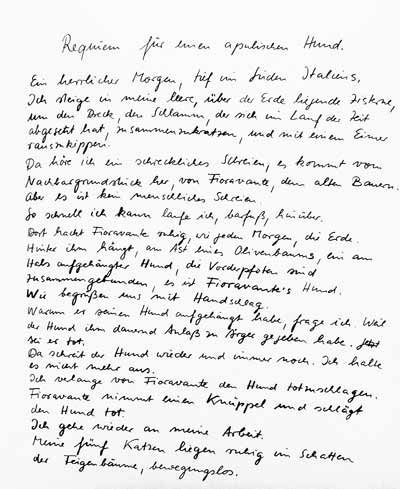 Requiem für einen apulischen Hund.
Ein herrlicher Morgen, tief im Süden Italiens,
Ich steige in meine leere, über der Erde liegende Zisterne,
um den Dreck, den Schlamm, der sich im Lauf der Zeit
abgesetzt hat, zusammenzukratzen, und mit einem Eimer
rauszukippen.
Da höre ich ein schreckliches Schreien, es kommt vom
Nachbargrundstück her, von Fioravante, dem alten Bauern.
Aber es ist kein menschliches Schreien.
So schnell ich kann laufe ich, barfuß, hinüber.
Dort hackt Fioravante ruhig, wie jeden Morgen, die Erde.
Hinter ihm hängt, am Ast eines Olivenbaums, ein am
Hals aufgehängter Hund, die Vorderpfoten sind
zusammengebunden, es ist Fioravante's Hund.
Wir begrüßen uns mit Handschlag.
Warum er seinen Hund aufgehängt habe, frage ich. Weil
der Hund ihm dauernd Anlaß zu Ärger gegeben habe. Jetzt
sei er tot.
Da schreit der Hund wieder und immer noch. Ich halte
es nicht mehr aus.
Ich verlange von Fioravante den Hund totzuschlagen.
Fioravante nimmt einen Knüppel und schlägt
den Hund tot.
Ich gehe wieder an meine Arbeit.
Meine fünf Katzen liegen ruhig im Schatten
der Feigenbäume, bewegungslos.